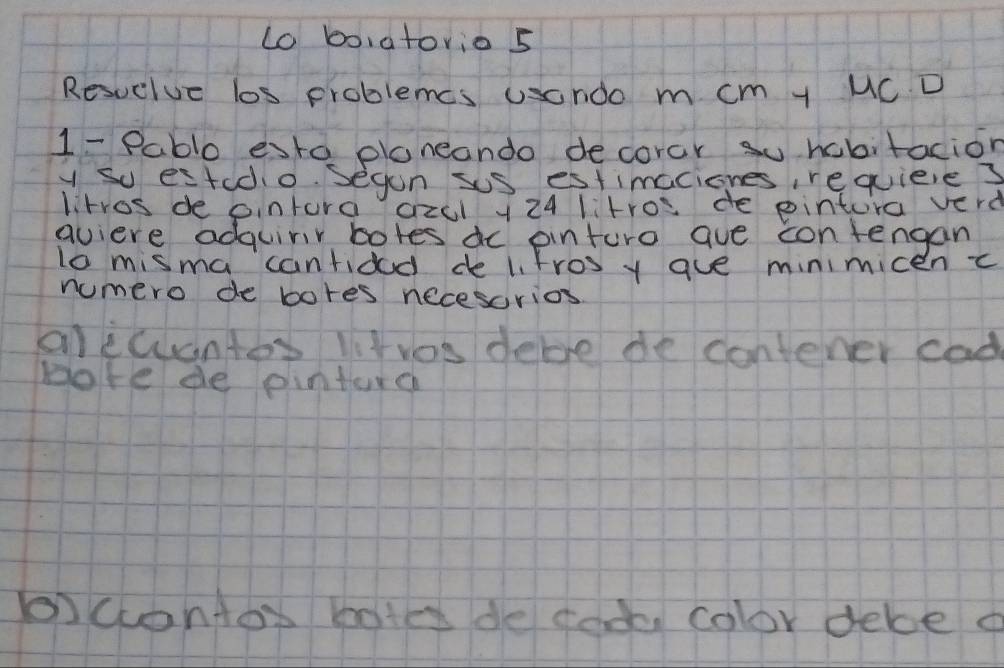 Laboratorio 5
Resuelve los problemas usando m.cm y MC.D
1- Pablo esta planeando decorar su habitacion
y su estudio. Segun sus estimaciones, requiere 3
litros de pintura azul y 24 litros de pintura verd
quiere adquirir botes de pintura que contengan
la misma cantidad de litros y que minimicen e
numero de botes necesarios
a) ¿Cuantos litros debe de contener cad
bote de pintura
b) Cuantos botes de cada color debe